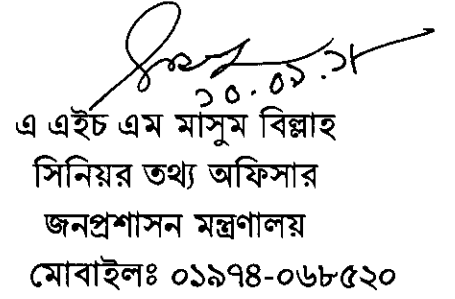 ২০.০১.২১
এ এইচ এম মাসুম বিল্লাহ
সিনিয়র তথ্য অফিসার
জনপ্রশাসন মন্ত্রণালয়
মোবাইলঃ ০১৯৭৪-০৬৮৫২০